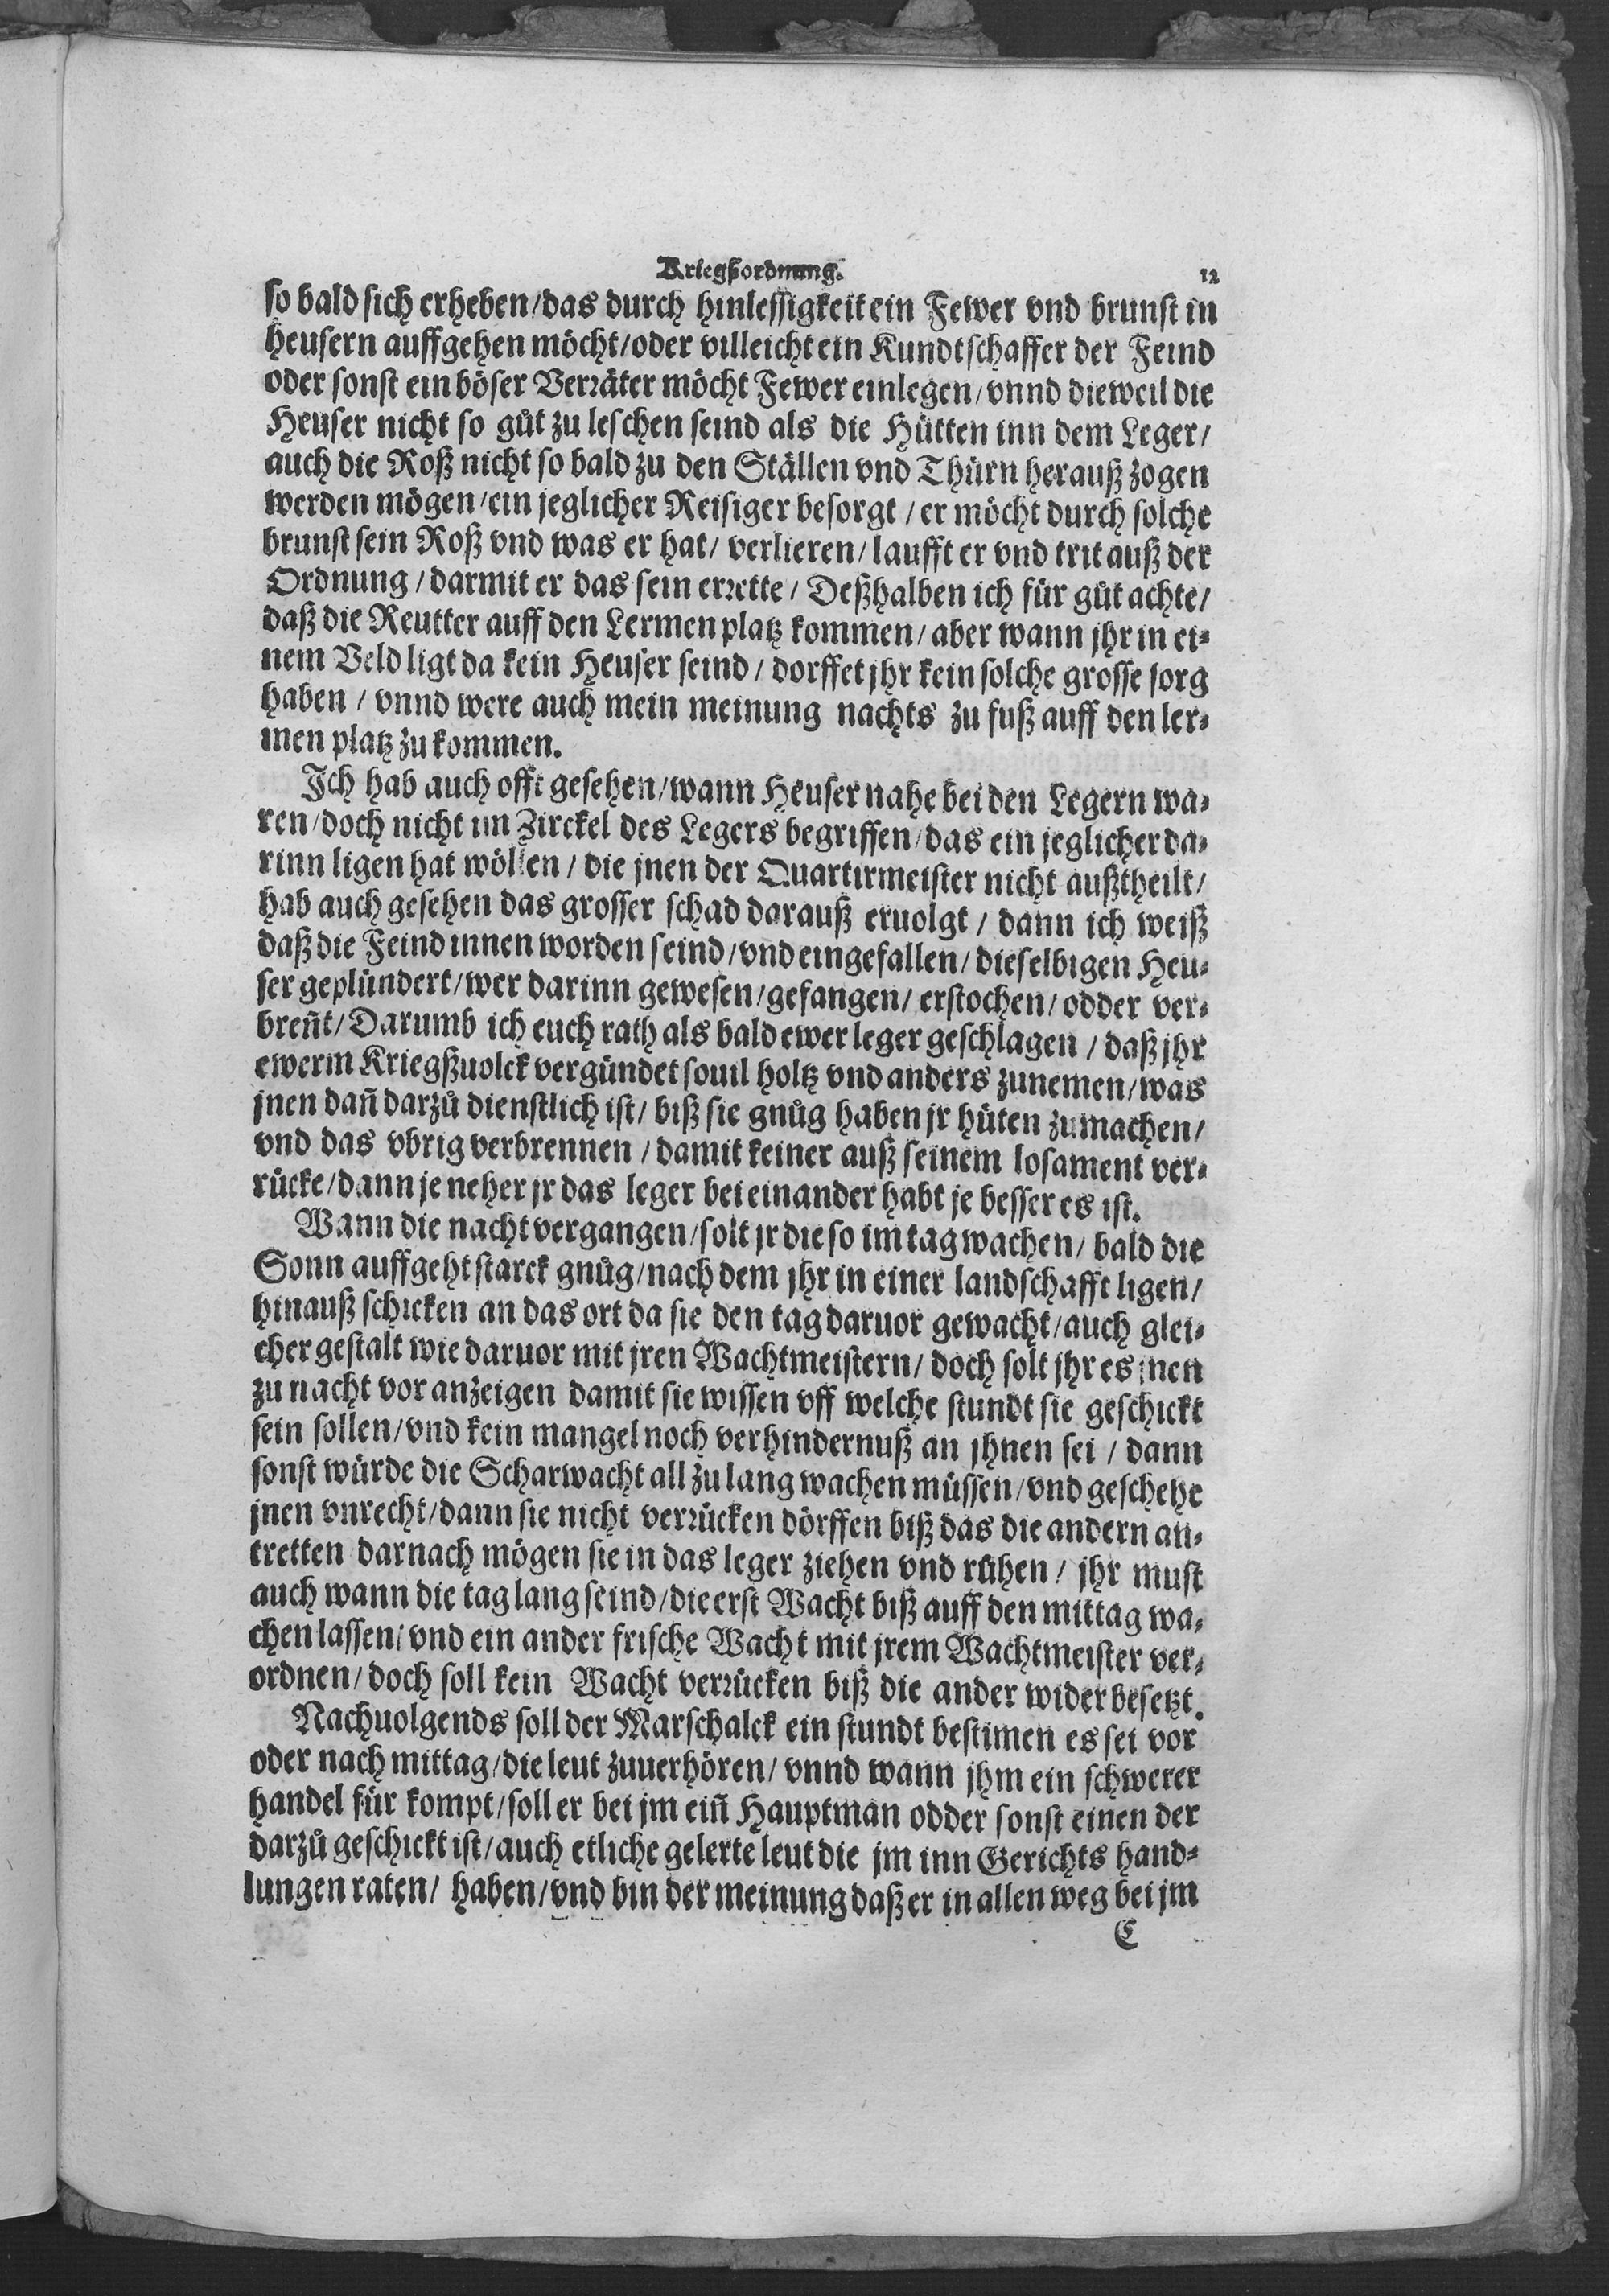 Kriegßordnung. 12
so bald sich erheben/das durch hinlessigkeit ein Fewer vnd brunst in
heusern auffgehen möcht/oder villeicht ein Kundtschaffer der Feind
oder sonst ein böser Verräter möcht Fewer einlegen/vnnd dieweil die
Heuser nicht so gůt zu leschen seind als die Hütten inn dem Leger/
auch die Roß nicht so bald zu den Ställen vnd Thürn herauß zogen
werden mögen/ein jeglicher Reisiger besorgt/er möcht durch solche
brunst sein Roß vnd was er hat/verlieren/laufft er vnd trit auß der
Ordnung/darmit er das sein errette/Deßhalben ich für gůt achte/
daß die Reutter auff den Lermen platz kommen/aber wann jhr in ei-
nem Veld ligt da kein Heuser seind/dorffet jhr kein solche grosse sorg
haben/vnnd were auch mein meinung nachts zu fuß auff den ler-
men platz zu kommen.
Ich hab auch offt gesehen/wann Heuser nahe bei den Legern wa-
ren/doch nicht im Zirckel des Legers begriffen/das ein jeglicher da-
rinn ligen hat wöllen/die jnen der Quartirmeister nicht außtheilt/
hab auch gesehen das grosser schad darauß eruolgt/dann ich weiß
daß die Feind innen worden seind/vnd eingefallen/dieselbigen Heu-
ser geplündert/wer darinn gewesen/gefangen/erstochen/odder ver-
breñt/Darumb ich euch rath als bald ewer leger geschlagen/daß jhr
ewerm Kriegßuolck vergündet souil holtz vnd anders zunemen/was
jnen dañ darzů dienstlich ist/biß sie gnůg haben jr hüten zumachen/
vnd das vbrig verbrennen/damit keiner auß seinem losament ver-
rücke/dann je neher jr das leger bei einander habt je besser es ist.
Wann die nacht vergangen/solt jr die so im tag wachen/bald die
Sonn auffgeht starck gnůg/nach dem jhr in einer landschafft ligen/
hinauß schicken an das ort da sie den tag daruor gewacht/auch glei-
cher gestalt wie daruor mit jren Wachtmeistern/doch solt jhr es jnen
zu nacht vor anzeigen damit sie wissen vff welche stundt sie geschickt
sein sollen/vnd kein mangel noch verhindernuß an jhnen sei/dann
sonst würde die Scharwacht all zu lang wachen müssen/vnd geschehe
jnen vnrecht/dann sie nicht verrücken dörffen biß das die andern an-
tretten darnach mögen sie in das leger ziehen vnd růhen/jhr must
auch wann die tag lang seind/die erst Wacht biß auff den mittag wa-
chen lassen/vnd ein ander frische Wacht mit jrem Wachtmeister ver-
ordnen/doch soll kein Wacht verrücken biß die ander wider besetzt.
Nachuolgends soll der Marschalck ein stundt bestimen es sei vor
oder nach mittag/die leut zuuerhören/vnnd wann jhm ein schwerer
handel für kompt/soll er bei jm eiñ Hauptman odder sonst einen der
darzů geschickt ist/auch etliche gelerte leut die jm inn Gerichts hand-
lungen raten/haben/vnd bin der meinung daß er in allen weg bei jm
C